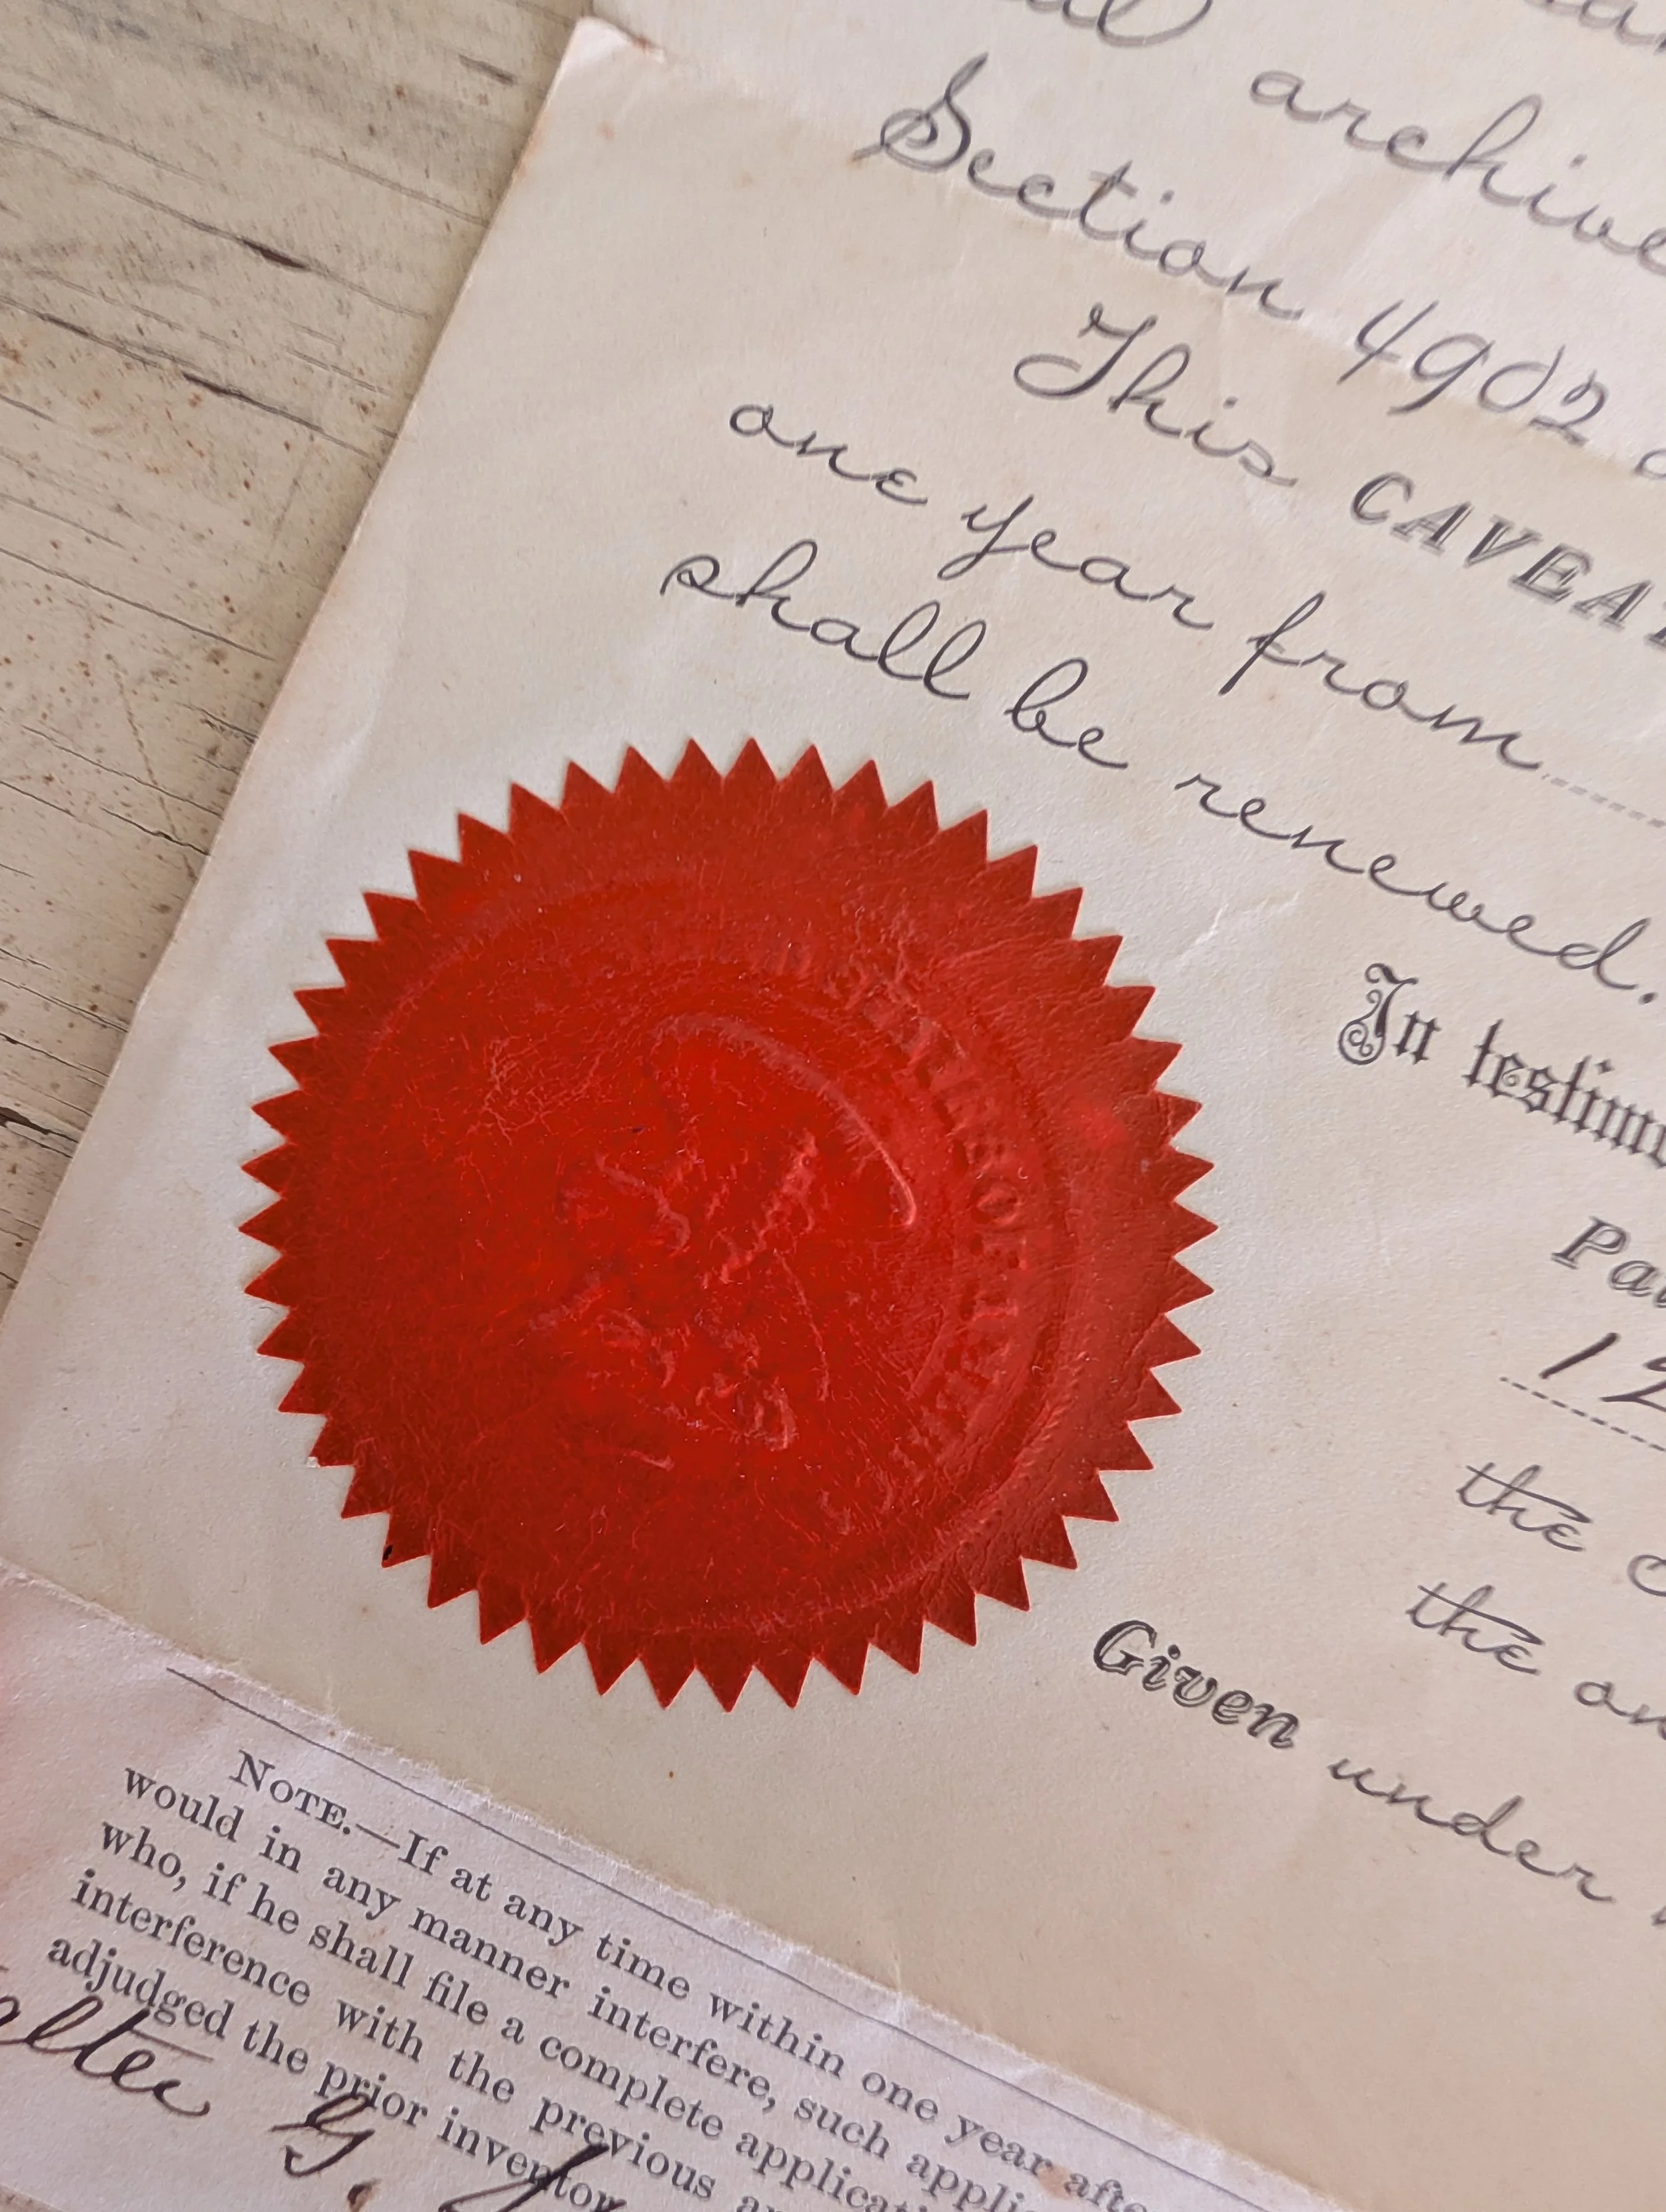 archive
Section 4902
This CAVEAT
one year from
shall be renewed.
In testimo
Pat
12
the
the
Given under
NOTE.—If at any time within one year afte
would in any manner interfere, such applic
who, if he shall file a complete applicati
interference with the previous
adjudged the prior inventor
G.